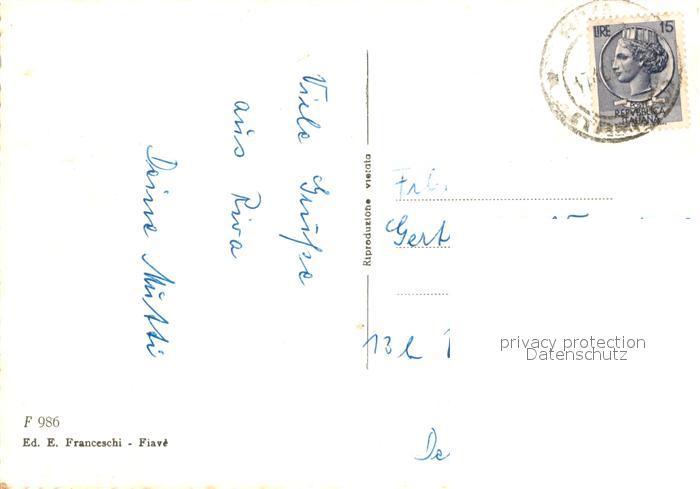 Viele Grüße
aus Riva
Deine Mutti
Riproduzione vietata
LIRE 15
POSTE
REPVBBLICA
ITALIANA
Frl.
Gert
13b
De
privacy protection
Datenschutz
F 986
Ed. E. Franceschi - Fiavè